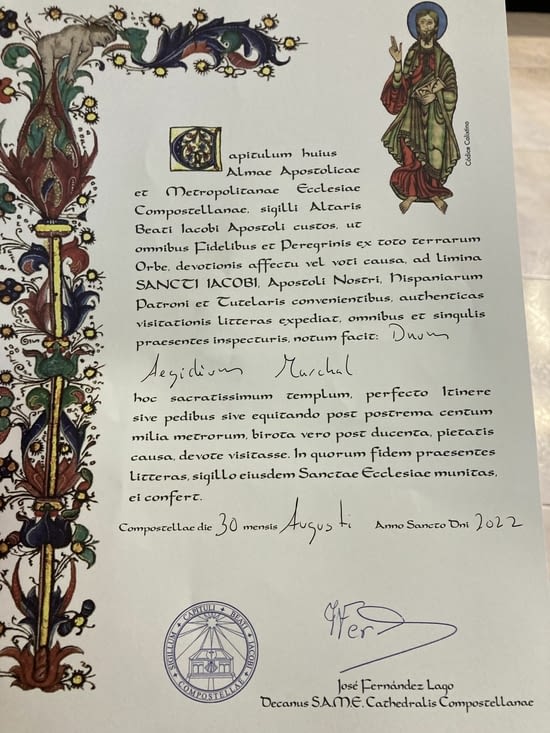 Códice Calixtino
Capitulum huius
Almae Apostolicae
et Metropolitanae Ecclesiae
Compostellanae, sigilli Altaris
Beati Iacobi Apostoli custos, ut
omnibus Fidelibus et Peregrinis ex toto terrarum
Orbe, devotionis affectu vel voti causa, ad limina
SANCTI IACOBI, Apostoli Nostri, Hispaniarum
Patroni et Tutelaris convenientibus, authenticas
visitationis litteras expediat, omnibus et singulis
praesentes inspecturis, notum facit: Dnum
Aegidium Marchal
hoc sacratissimum templum, perfecto Itinere
sive pedibus sive equitando post postrema centum
milia metrorum, birota vero post ducenta, pietatis
causa, devote visitasse. In quorum fidem praesentes
litteras, sigillo eiusdem Sanctae Ecclesiae munitas,
ei confert.
Compostellae die 30 mensis Augusti Anno Sancto Dni 2022
SIGILLUM CAPITULI BEATI IACOBI COMPOSTELLAE
José Fernández Lago
Decanus S.A.M.E. Cathedralis Compostellanae